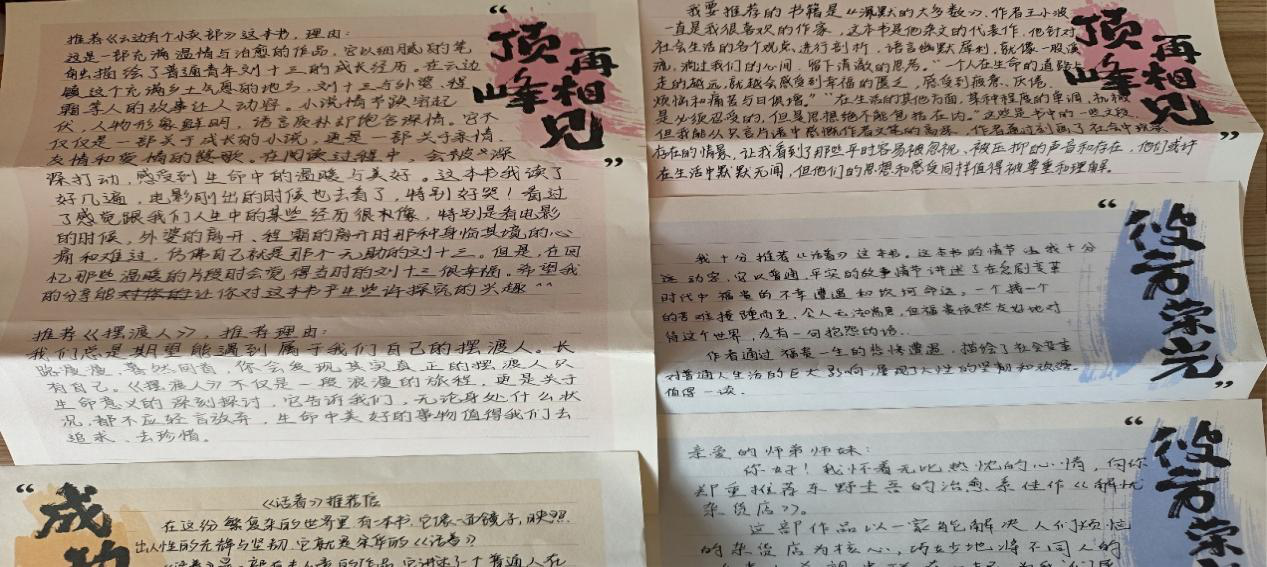 顶峰
再相见
推荐《云边有个小卖部》这本书，理由：
这是一部充满温情与治愈的作品，它以细腻的笔
触描绘了普通青年刘十三的成长经历。在云边
镇这个充满乡土气息的地方，刘十三与外婆、程
霜等人的故事让人动容。小说情节跌宕起
伏，人物形象鲜明，语言质朴却饱含深情。它不
仅仅是一部关于成长的小说，更是一部关于亲情、
友情和爱情的赞歌。在阅读过程中，会被它深
深打动，感受到生命中的温暖与美好。这本书我读了
好几遍，电影刚出的时候也去看了，特别好哭！看过
了感觉跟我们人生中的某些经历很相像，特别是看电影
的时候，外婆的离开、程霜的离开时那种身临其境的心
痛和难过，仿佛自己就是那个无助的刘十三。但是，在回
忆那些温暖的片段时会觉得当时的刘十三很幸福。希望我
的分享能让你对这本书产生些许探究的兴趣^^
推荐《摆渡人》，推荐理由：
我们总是期望能遇到属于我们自己的摆渡人。长
路漫漫，蓦然回首，你会发现其实真正的摆渡人只
有自己。《摆渡人》不仅是一段浪漫的旅程，更是关于
生命意义的深刻探讨，它告诉我们，无论身处什么状
况，都不应轻言放弃，生命中美好的事物值得我们去
追求、去珍惜。
成功
《活着》推荐信
在这份繁复杂的世界里，有一本书，它像一面镜子，映照
出人性的光辉与坚韧，它就是余华的《活着》
顶峰
再相见
我要推荐的书籍是《沉默的大多数》，作者王小波
一直是我很喜欢的作家，这本书是他杂文的代表作，他针对
社会生活的各个观点，进行剖析，语言幽默犀利，就像一股溪
流，淌过我们的心间，留下清澈的思考。“一个人在生命的道路上
走的越远，就越会感受到幸福的匮乏，感受到疲惫、厌倦，
烦恼和痛苦与日俱增。”“在生活的其他方面，某种程度的单调、机械
是必须忍受的，但是思想绝不能包括在内。”这些是书中的一些文段
但我能从只言片语中感慨作者文笔的高深，作者通过刻画了社会中现实
存在的情景，让我看到了那些平时容易被忽视，被压抑的声音和存在，他们或许
在生活中默默无闻，但他们的思想和感受同样值得被尊重和理解。
彼方荣光
我十分推荐《活着》这本书。这本书的情节让我十分
动容，它以普通、平实的故事情节讲述了在急剧变革
时代中福贵的不幸遭遇和坎坷命运。一个接一个
的苦难接踵而至，令人无法喘息，但福贵依然友好地对
待这个世界，没有一句抱怨的话。
作者通过福贵一生的悲惨遭遇，描绘了社会变革
对普通人生活的巨大影响，展现了人性的坚韧和顽强。
值得一读。
彼方荣
亲爱的师弟师妹：
你好！我怀着无比热忱的心情，向你
郑重推荐东野圭吾的治愈系佳作《解忧
杂货店》。
这部作品以一家能解决人们烦恼
的杂货店为核心，巧妙地将不同人的